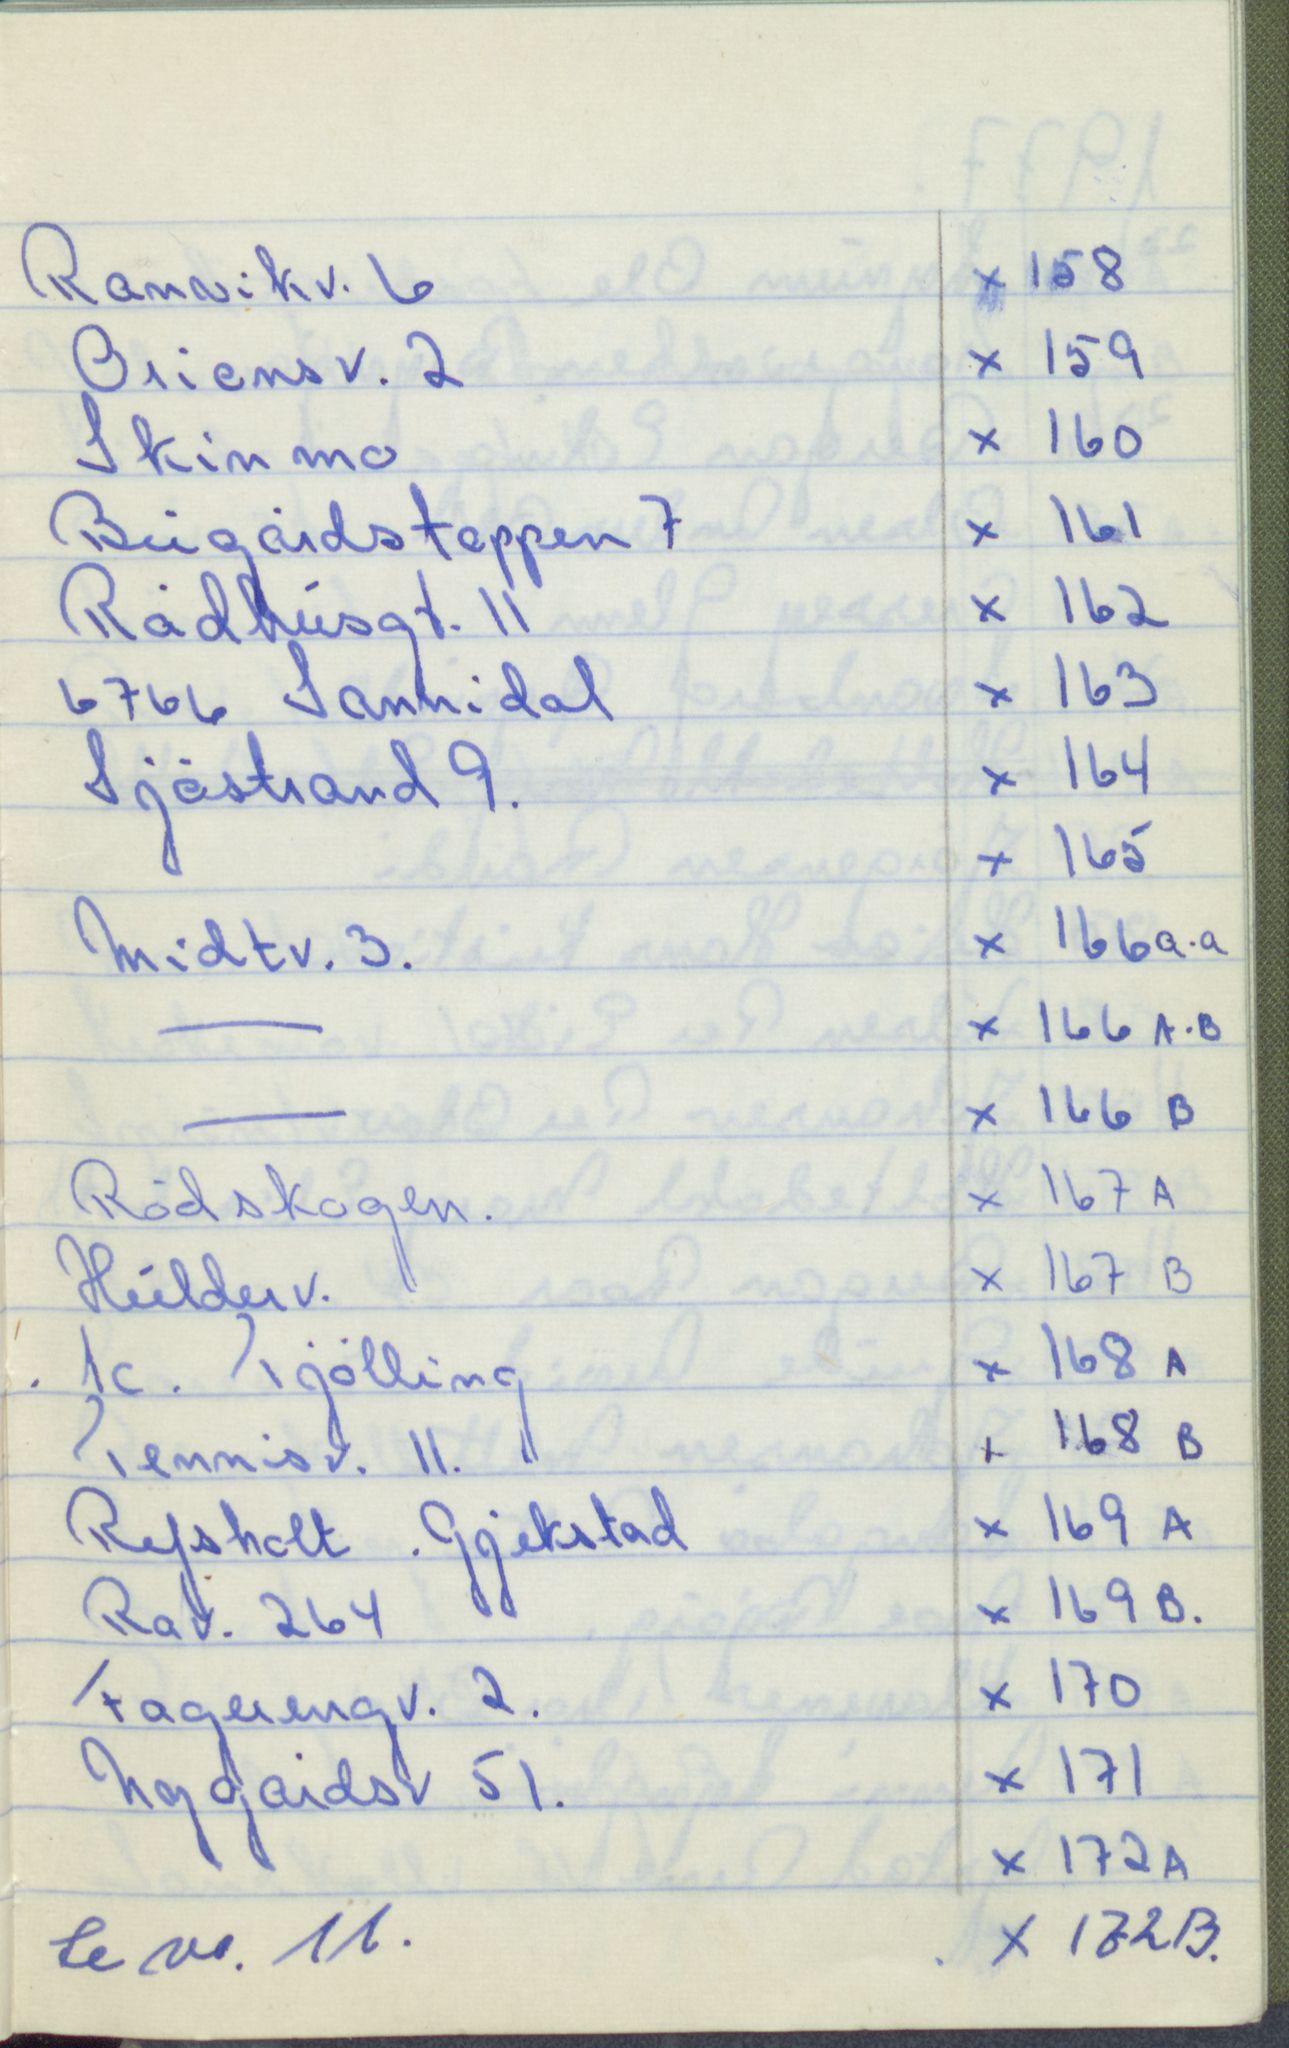 Ranvikv. 6 x 158
Oriensv. 2 x 159
Skinmo x 160
Bugårdstoppen 7 x 161
Rådhusgt. 11 x 162
6766 Sannidal x 163
Sjøstrand 9. x 164
x 165
Midtv. 3. x 166 a.a
— x 166 A.B
— x 166 B
Rødskogen. x 167 A
Hulderv. x 167 B
1c. Tjølling x 168 A
Tennisv. 11. x 168 B
Refsholt . Gjekstad x 169 A
Rav. 264 x 169 B.
Fagerengv. 2. x 170
Nygårdsv 51. x 171
x 172 A
Se nr. 11. x 172 B.